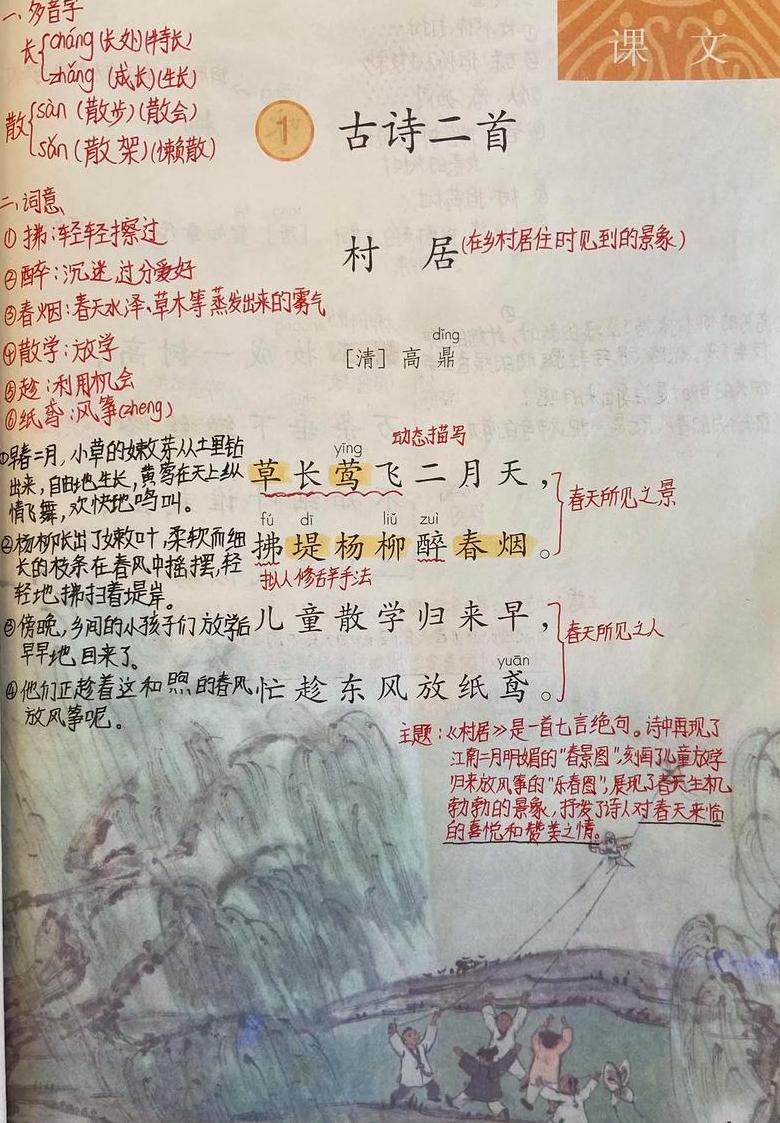 课 文
一、多音字
长{cháng(长处)(特长)
zhǎng(成长)(生长)
散{sàn(散步)(散会)
sǎn(散架)(懒散)
1 古诗二首
二、词意
①拂:轻轻擦过
②醉:沉迷,过分爱好
③春烟:春天水泽、草木等蒸发出来的雾气
④散学:放学
⑤趁:利用机会
⑥纸鸢:风筝(zheng)
村 居(在乡村居住时见到的景象)
dǐng
[清] 高 鼎
动态描写
yīng
草长莺飞二月天,
春天所见之景
fú dī liǔ zuì
拂堤杨柳醉春烟。
拟人修辞手法
儿童散学归来早,
春天所见之人
yuān
忙趁东风放纸鸢。
①早春二月,小草的嫩芽从土里钻
出来,自由地生长,黄莺在天上纵
情飞舞,欢快地鸣叫。
②杨柳长出了嫩叶,柔软而细
长的枝条在春风中摇摆,轻
轻地拂扫着堤岸。
③傍晚,乡间的小孩子们放学后
早早地回来了。
④他们正趁着这和煦的春风
放风筝呢。
主题:《村居》是一首七言绝句。诗中再现了
江南二月明媚的“春景图”,刻画了儿童放学
归来放风筝的“乐春图”,展现了春天生机
勃勃的景象,抒发了诗人对春天来临
的喜悦和赞美之情。